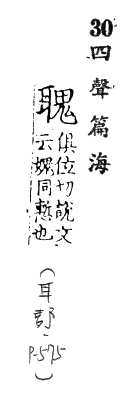 30
四聲篇海
聭
俱位切說文
云媿同慙也
（耳部，P.575）